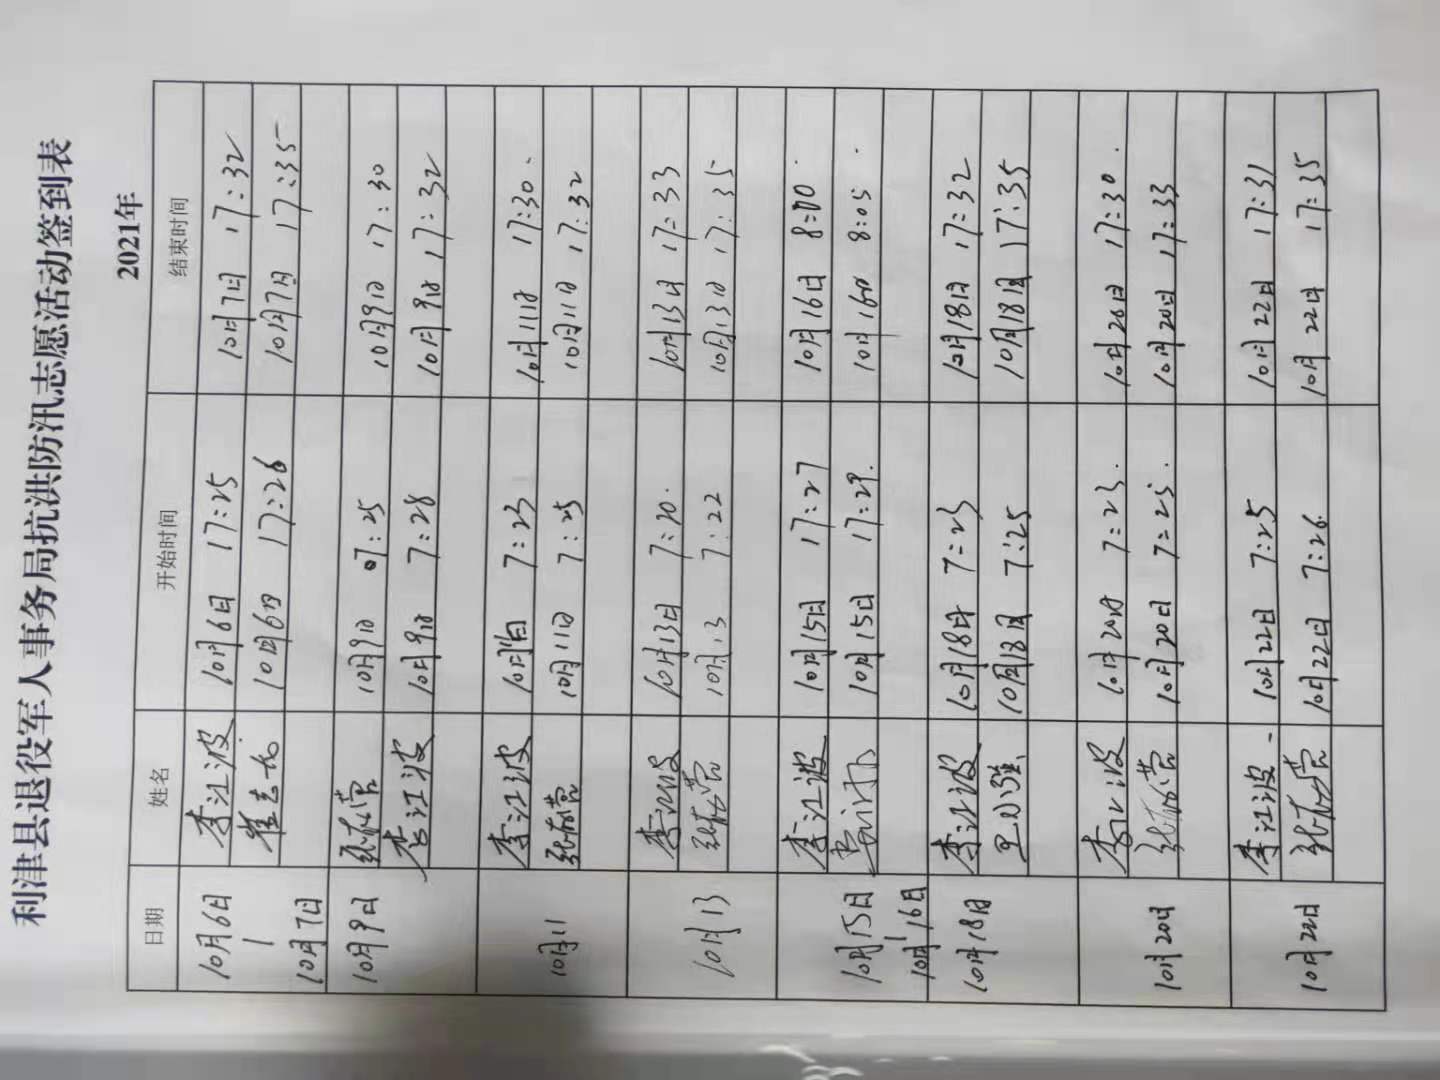 利津县退役军人事务局抗洪防汛志愿活动签到表
2021年
日期 姓名 开始时间 结束时间
10月6日 李江波 10月6日 17:25 10月7日 17:32
| 10月6日 17:26 10月7日 17:35
10月7日
10月9日 10月9日 07:25 10月9日 17:30
李江波 10月9日 7:28 10月9日 17:32
李江波 10月11日 7:23 10月11日 17:30.
10月11 10月11日 7:25 10月11日 17:32
李江波 10月13日 7:20. 10月13日 17:33
10月13 10月13 7:22 10月13日 17:35
李江波 10月15日 17:27 10月16日 8:00.
10月15日 10月15日 17:29. 10月16日 8:05.
10月16日
10月18日 李江波 10月18日 7:23 10月18日 17:32
10月18日 7:25 10月18日 17:35
李江波 10月20日 7:23. 10月20日 17:30.
10月20日 10月20日 7:25. 10月20日 17:33
李江波 10月22日 7:25 10月22日 17:31
10月22日 10月22日 7:26. 10月22日 17:35